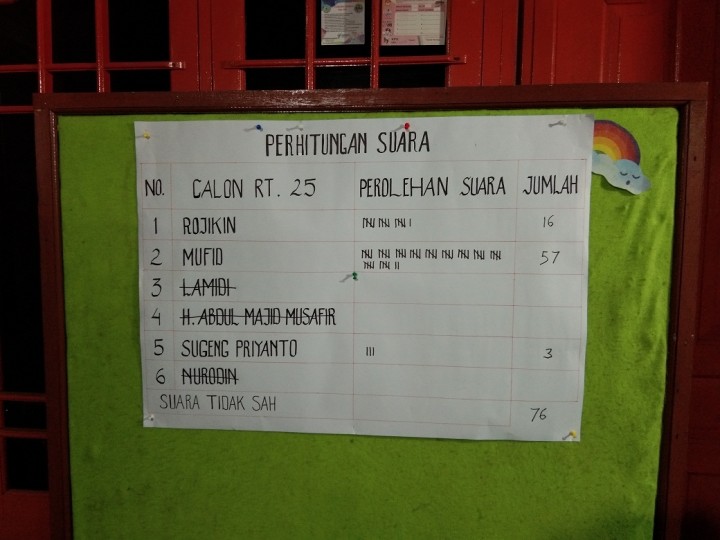 PERHITUNGAN SUARA
NO. CALON RT. 25 PEROLEHAN SUARA JUMLAH
1 ROJIKIN 16
2 MUFID 57
3 LAMIDI
4 H. ABDUL MAJID MUSAFIR
5 SUGENG PRIYANTO 3
6 NURODIN
SUARA TIDAK SAH 76